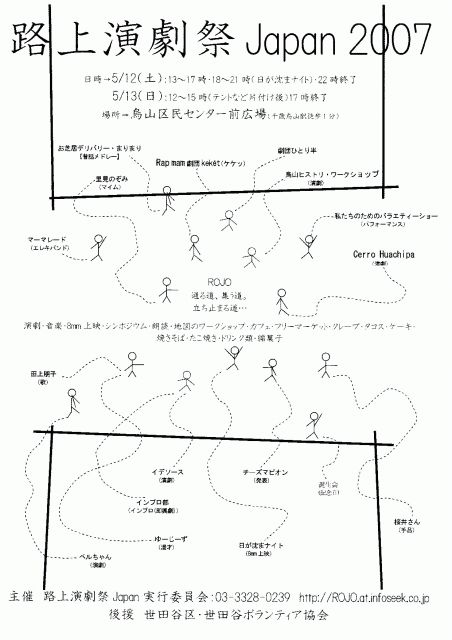 路上演劇祭 Japan 2007
日時→5/12(土):13～17時・18～21時(日が沈まナイト)・22時終了
5/13(日):12～15時(テントなど片付け後)17時終了
場所→烏山区民センター前広場(千歳烏山駅徒歩1分)
お芝居デリバリー・まりまり
【昔話メドレー】
Rap mam劇団 kekét(ケケッ)
劇団ひとり半
里見のぞみ
(マイム)
烏山ヒストリ・ワークショップ
(演劇)
私たちのためのバラエティーショー
(パフォーマンス)
マーマレード
(エレキバンド)
Cerro Huachipa
(演劇)
ROJO
通る道、集う道。
立ち止まる道…
演劇・音楽・8mm上映・シンポジウム・朗読・地図のワークショップ・カフェ・フリーマーケット・クレープ・タコス・ケーキ・
焼きそば・たこ焼き・ドリンク類・綿菓子
田上朋子
(歌)
イデソース
(演劇)
チーズマピオン
(発表)
誕生会
インプロ部
(インプロ(即興劇))
桜井さん
ゆーじーず
(漫才)
日が沈まナイト
(8mm上映)
ベルちゃん
(演劇)
主催 路上演劇祭 Japan 実行委員会:03-3328-0239 http://ROJO.at.infoseek.co.jp
後援 世田谷区・世田谷ボランティア協会